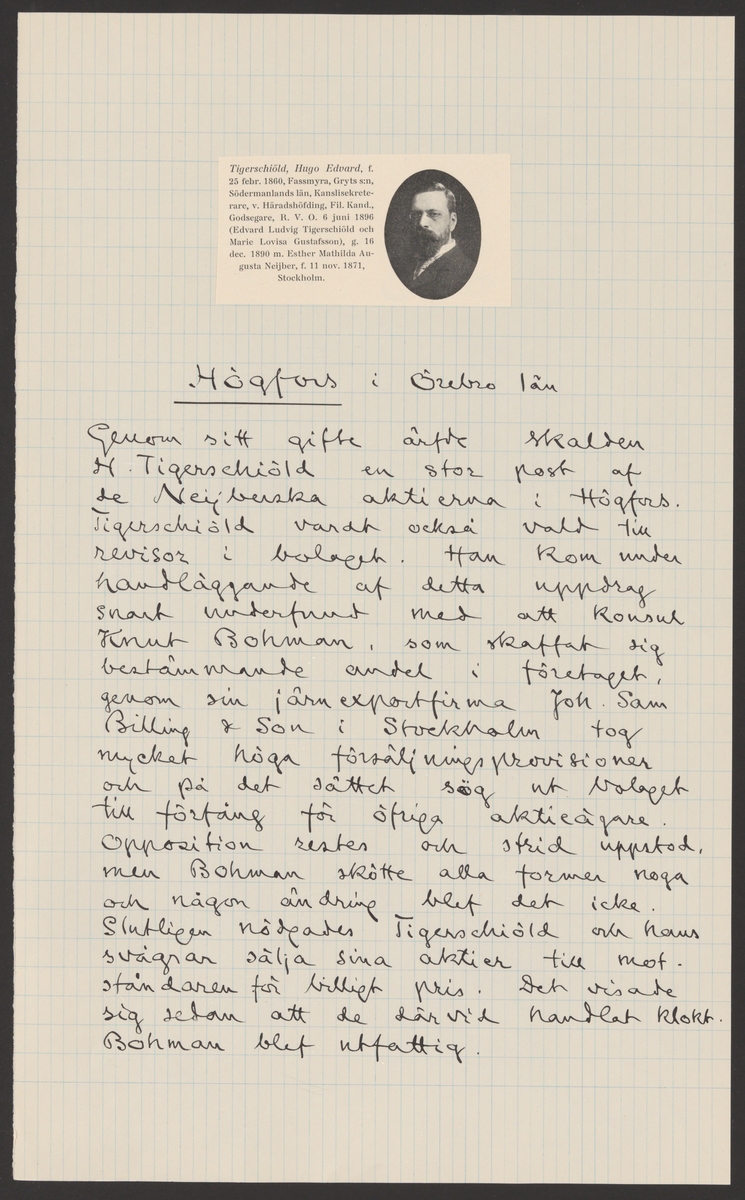 Tigerschiöld, Hugo Edvard, f.
25 febr. 1860, Fassmyra, Gryts s:n,
Södermanlands län, Kanslisekrete-
rare, v. Häradshöfding, Fil. Kand.,
Godsegare, R. V. O. 6 juni 1896
(Edvard Ludvig Tigerschiöld och
Marie Lovisa Gustafsson), g. 16
dec. 1890 m. Esther Mathilda Au-
gusta Neijber, f. 11 nov. 1871,
Stockholm.
Högfors i Örebro län
Genom sitt gifte ärfde skalden
H. Tigerschiöld en stor post af
de Neijberska aktierna i Högfors.
Tigerschiöld vardt också vald till
revisor i bolaget. Han kom under
handläggande af detta uppdrag
snart underfund med att konsul
Knut Bohman, som skaffat sig
bestämmande andel i företaget,
genom sin järnexportfirma Joh. Sam
Billing & Son i Stockholm tog
mycket höga försäljningsprovisioner
och på det sättet sög ut bolaget
till förfång för öfriga aktieägare.
Opposition restes och strid uppstod,
men Bohman skötte alla former noga
och någon ändring blef det icke.
Slutligen nödgades Tigerschiöld och hans
svågrar sälja sina aktier till mot-
ståndaren för billigt pris. Det visade
sig sedan att de därvid handlat klokt.
Bohman blef utfattig.